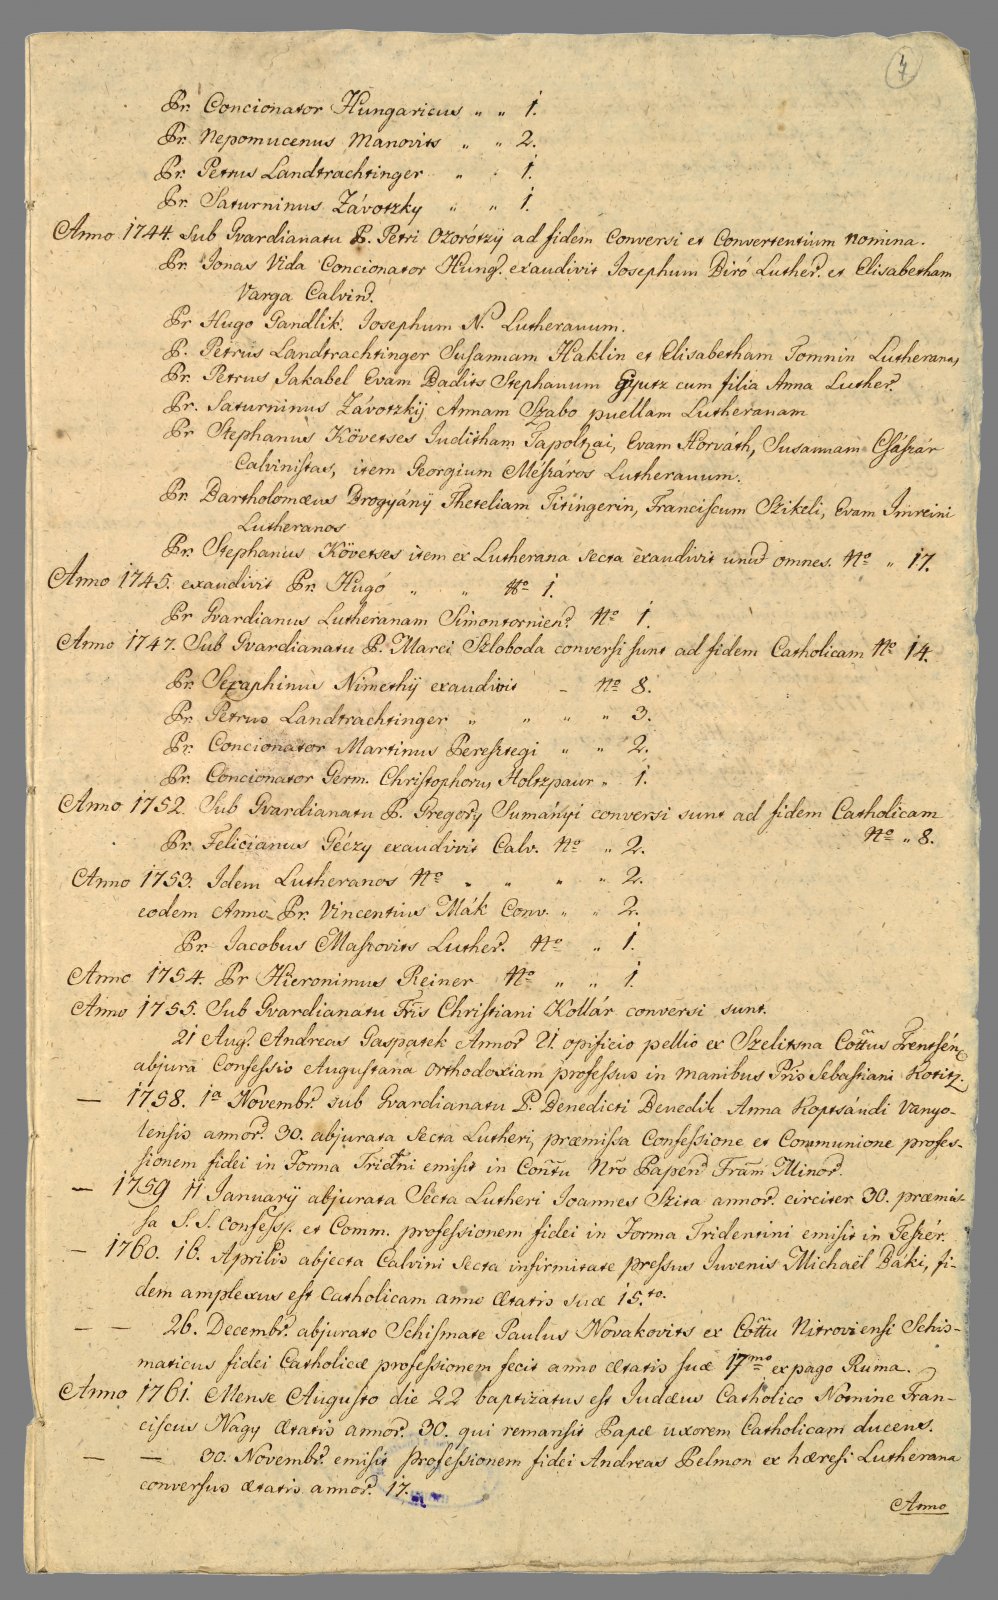 4
Pr. Concionator Hungaricus „ „ 1.
Pr. Nepomucenus Manovits „ „ 2.
Pr. Petrus Landtrachtinger „ „ 1.
Pr. Saturninus Závotzky „ „ 1.
Anno 1744. Sub Gvardianatu P. Petri Ozorótzÿ ad fidem Conversi et Convertentium nomina.
Pr. Jonas Vida Concionator Hung. exaudivit Josephum Biró Luther. et Elisabetham
Varga Calvin.
Pr Hugo Gandlik. Josephum N. Lutheranum.
P. Petrus Landtrachtinger Susannam Haklin et Elisabetham Tomnin Lutheranas
Pr. Petrus Jakabel Evam Badits Stephanum Gyutz cum filia Anna Luther.
Pr. Saturninus Závotzkÿ Annam Szabo puellam Lutheranam
Pr Stephanus Követses Juditham Tapoltzai, Evam Horváth, Susannam Császár
Calvinistas, item Georgium Mészáros Lutheranum.
Pr. Bartholomæus Brogyánÿ Theteliam Titingerin, Franciscum Szikeli, Evam Imreini
Lutheranos
Pr. Stephanus Követses item ex Lutherana secta exaudivit unum omnes. No „ 17.
Anno 1745. exaudivit Pr. Hugó „ „ No 1.
Pr Gvardianus Lutheranam Simontornien. No 1.
Anno 1747. Sub Gvardianatu P. Marci Szloboda conversi sunt ad fidem Catholicam No 14.
Pr. Seraphinus Nimethÿ exaudivit – No 8.
Pr. Petrus Landtrachtinger „ „ „ „ 3.
Pr. Concionator Martinus Peresztegi „ „ 2.
Pr. Concionator Germ. Christophorus Holtzpaur „ 1.
Anno 1752. Sub Gvardianatu P. Gregorÿ Sumányi conversi sunt ad fidem Catholicam
No „ 8.
Pr. Felicianus Géczy exaudivit Calv. No „ 2.
Anno 1753. Idem Lutheranos No „ „ „ „ 2.
eodem Anno Pr. Vincentius Mák Conv. „ „ 2.
Pr. Jacobus Maszovits Luther. No „ 1.
Anno 1754. Pr Hieronimus Reiner No „ „ 1.
Anno 1755. Sub Gvardianatu Fris Christiani Kollár conversi sunt.
21 Aug. Andreas Gaspatek Annor 21. opificio pellio ex Szelitsna Cottus Trentsén.
abjura Confessio Augustana orthodoxiam professus in manibus Pris Sebastiani Kotitz.
— 1758. 1a Novembr. sub Gvardianatu P. Benedicti Benedik Anna Koptsándi Vanyo-
lensis annor. 30. abjurata Secta Lutheri, præmissa Confessione et Communione profes-
sionem fidei in Forma Tridtni emisit in Conttu Nro Papen Fram Minor.
— 1759 11 Januarÿ abjurata Secta Lutheri Joannes Szita annor. circiter 30. præmis-
sa S. S. confess. et Comm. professionem fidei in Forma Tridentini emisit in Teszér.
— 1760. 16. Aprilis abjecta Calvini Secta infirmitate pressus Juvenis Michaël Báki, fi-
dem amplexus est Catholicam anno ætatis suæ 15.to
— — 26. Decembr. abjurato Schismate Paulus Novakovits ex Cottu Nitroviensi Schis-
maticus fidei Catholicæ professionem fecit anno ætatis suæ 17mo ex pago Ruma.
Anno 1761. Mense Augusto die 22 baptizatus est Judæus Catholico Nomine Fran-
ciscus Nagy ætatis annor. 30. qui remansit Papæ uxorem Catholicam ducens.
— — 30. Novembr. emisit professionem fidei Andreas Pelmon ex hæresi Lutherana
conversus ætatis annor. 17.
Anno